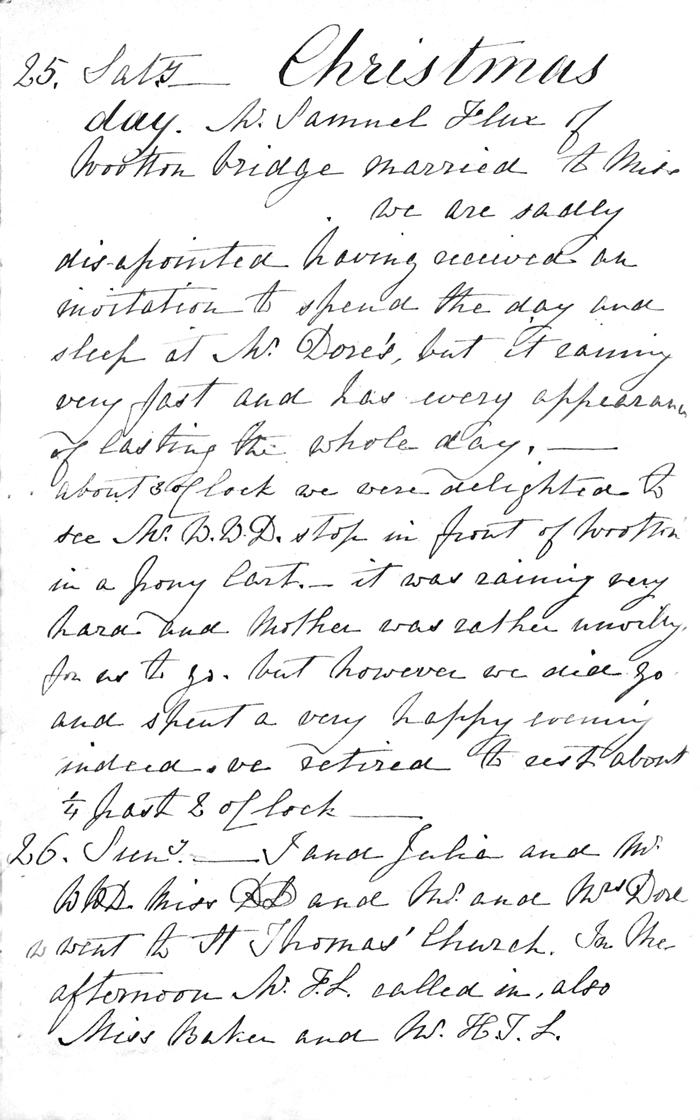 25. Saty — Christmas
day. Mr. Samuel Flux of
Wootton bridge married to Miss
we are sadly
disapointed having received an
invitation to spend the day and
sleep at Mr. Dore's, but it raining
very fast and has every appearance
of lasting the whole day. —
about 3 oClock we were delighted to
see Mr. W.B.D. stop in front of Wootton
in a Pony Cart. — it was raining very
hard and Mother was rather unwillg.
for us to go. but however we did go
and spent a very happy evening
indeed. we retired to rest about
¼ past 2 oClock —
26. Suny. — I and Julia and Mr.
WBD Miss and Mr. and Mrs Dore
went to St Thomas' Church. In the
afternoon Mr. F.L. called in, also
Miss Baker and Mr. H.T.L.